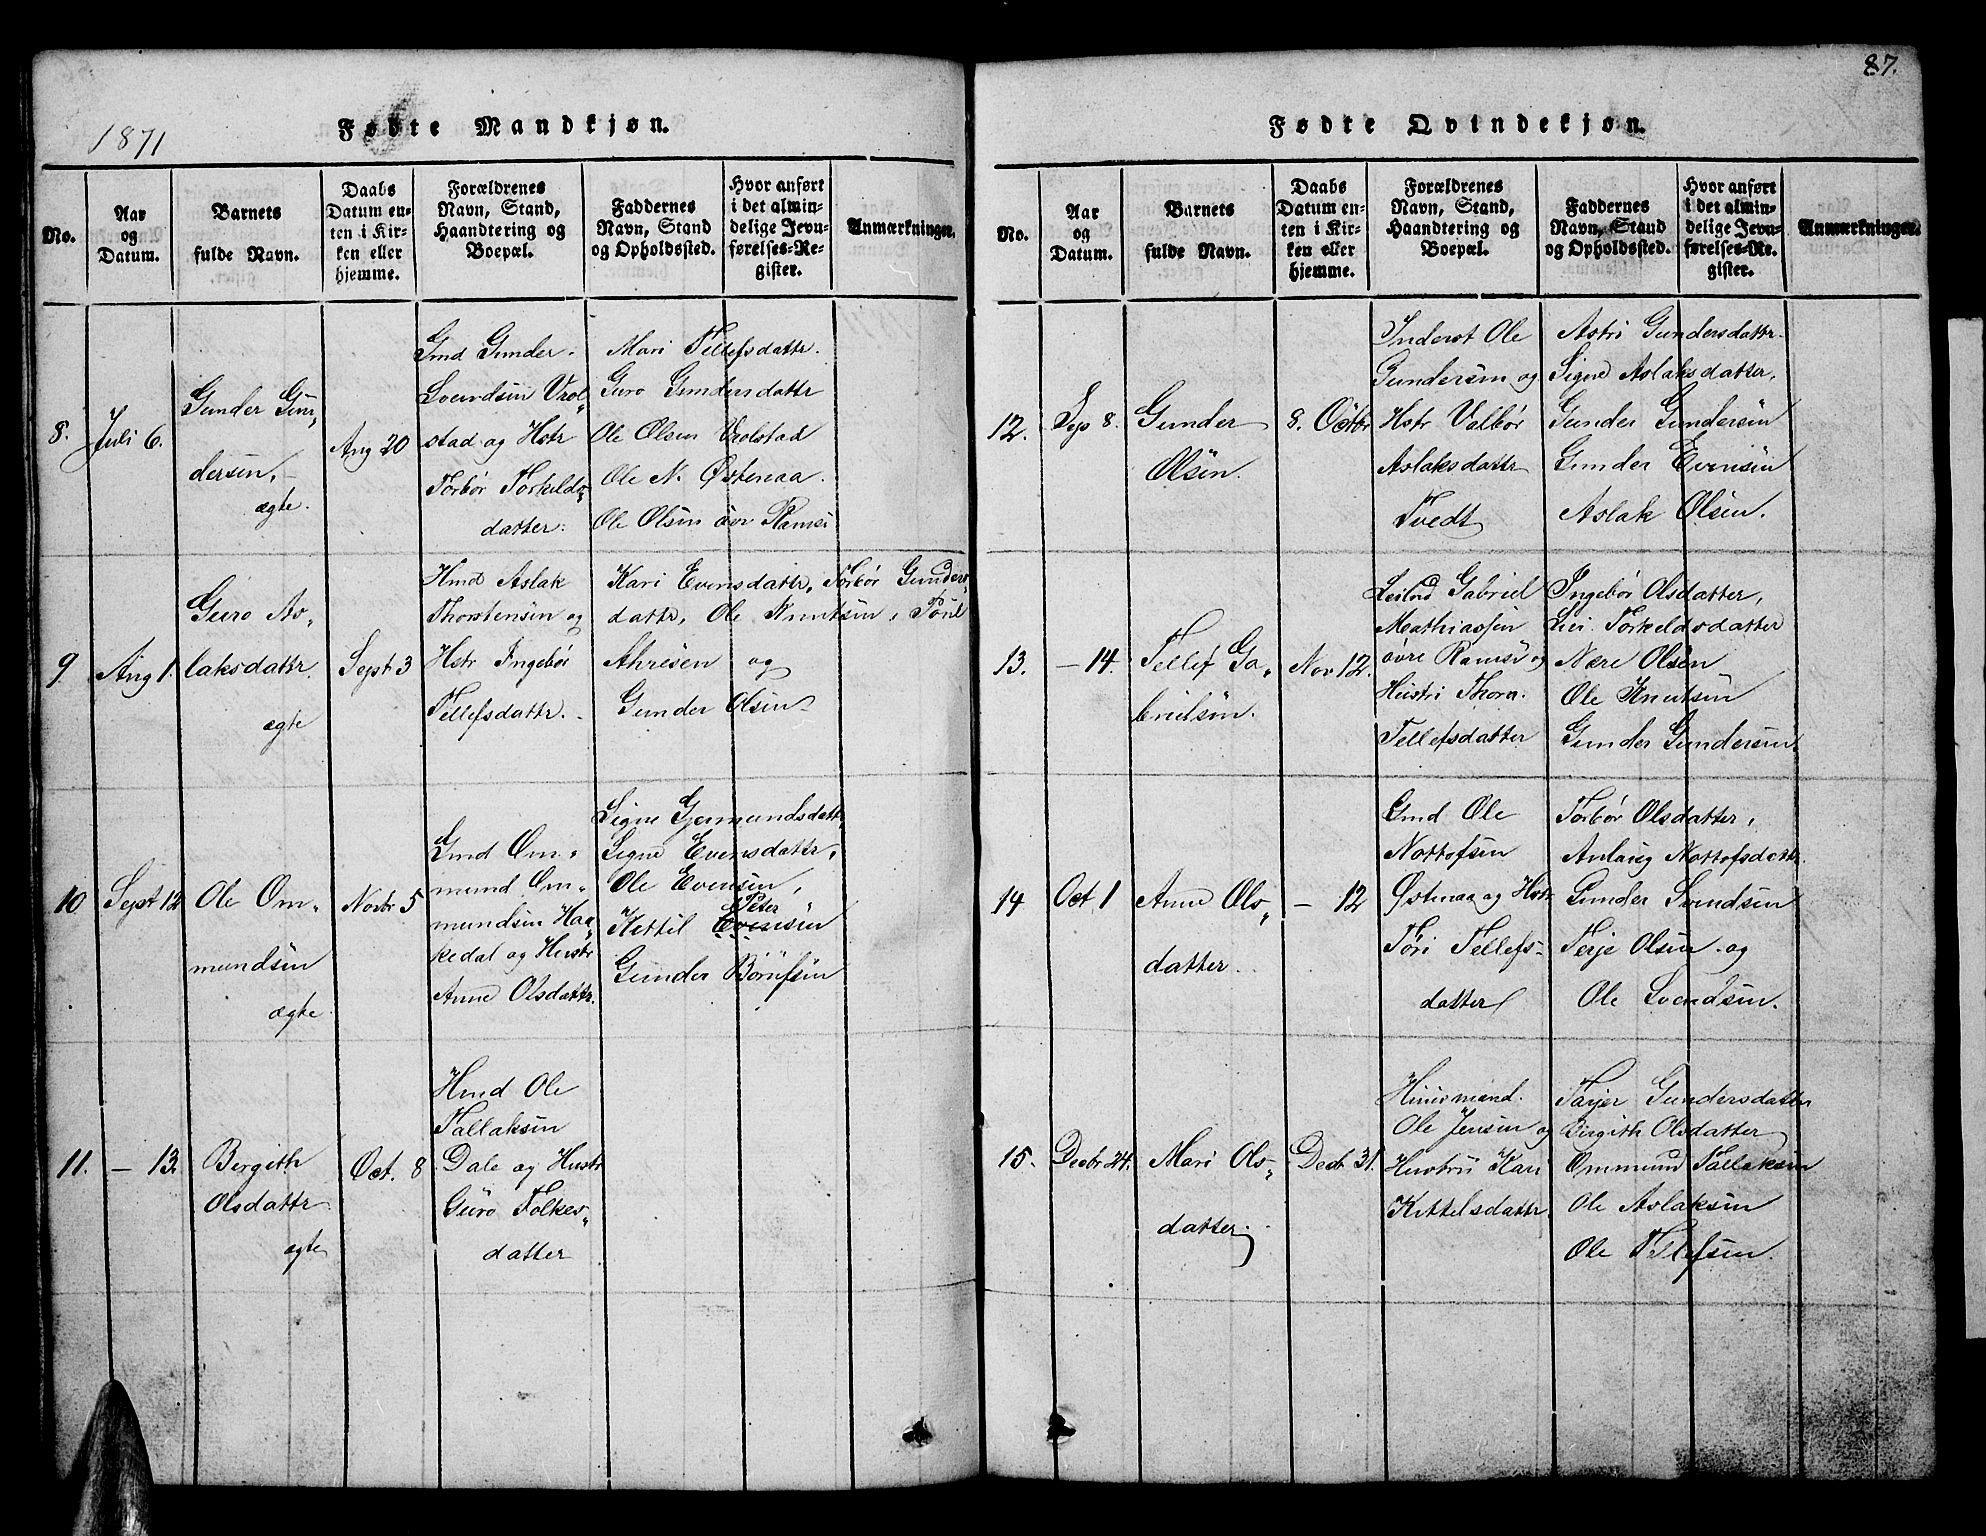 1871
Fødte Mandkjøn.
No.
Aar
og
Datum.
Barnets
fulde Navn.
Daabs
Datum en-
ten i Kir-
ken eller
hjemme.
Forældrenes
Navn, Stand,
Haandtering og
Boepæl.
Faddernes
Navn, Stand
og Opholdssted.
Hvor anført
i det almin-
delige Jevn-
førelses-Re-
gister.
Anmærkninger.
8.
Juli 6.
Gunder Gun„
dersen,
ægte.
Aug 20
Gmd Gunder
Svendsen Vrol„
stad og Hstr
Torbør Torkelds„
datter.
Mari Tellefsdattr.
Guro Gundersdattr
Ole Olsen Vrolstad
Ole N. Østenaa.
Ole Olsen øvr Ramsi
9.
Aug 1.
Guro As„
laksdattr.
ægte
Sept 3
Hmd Aslak
Thorstensen og
Hstr Ingebør
Tellefsdattr.
Kari Evensdattr, Torbør Gunders„
dattr, Ole Knutsen, Toril
Ahresen og
Gunder Olsen
10
Sept 12
Ole Om„
mundsen
ægte.
Novbr 5
Gmd Om„
mund Om„
mundsen Haa„
kedal og Hustr
Anne Olsdattr.
Signe Gjermundsdattr,
Signe Evensdattr,
Ole Evensen,
Peter
Kittil Evensen
Gunder Børufsen
11.
— 13.
Bergith
Olsdattr
ægte
Oct. 8
Hmd Ole
Tallaksen
Dale og Hustr
Guro Folkes„
datter
87.
Fødte Qvindekjøn.
No.
Aar
og
Datum.
Barnets
fulde Navn.
Daabs
Datum en-
ten i Kir-
ken eller
hjemme.
Forældrenes
Navn, Stand,
Haandtering og
Boepæl.
Faddernes
Navn, Stand
og Opholdssted.
Hvor anført
i det almin-
delige Jevn-
førelses-Re-
gister.
Anmærkninger.
12.
Sep 8.
Gunder
Olsen.
8. Octbr
Inderst Ole
Gundersen og
Hstr Valbør
Aslaksdattr
Tvedt
Astri Gundersdattr.
Signe Aslaksdatter,
Gunder Gundersen
Gunder Evensen
Aslak Olsen.
13.
— 14.
Tellef Ga„
brielsen.
Nov 12.
Leilnd Gabriel
Mathiassen
øvre Ramsi og
Hustri Thora
Tellefsdatter
Ingebør Olsdatter,
Livi Torkeldsdatter
Nære Olsen
Ole Knutsen
Gunder Gundersen
14
Oct 1
Anne Ols„
datter.
— 12
Gmd Ole
Nottofsen
Østenaa og Hstr
Tøri Tellefs-
datter
Torbør Olsdatter,
Anlaug Nottofsdattr.
Gunder Svendsen
Terje Olsen og
Ole Svendsen.
15.
Decbr 24.
Mari Ols„
datter.
Decbr 31.
Huusmand.
Ole Jensen og
Hustru Kari
Kittelsdattr.
Tarjer Gundersdatter
Birgith Olsdatter
Ommund Tallaksen
Ole Aslaksen
Ole Tellefsen.